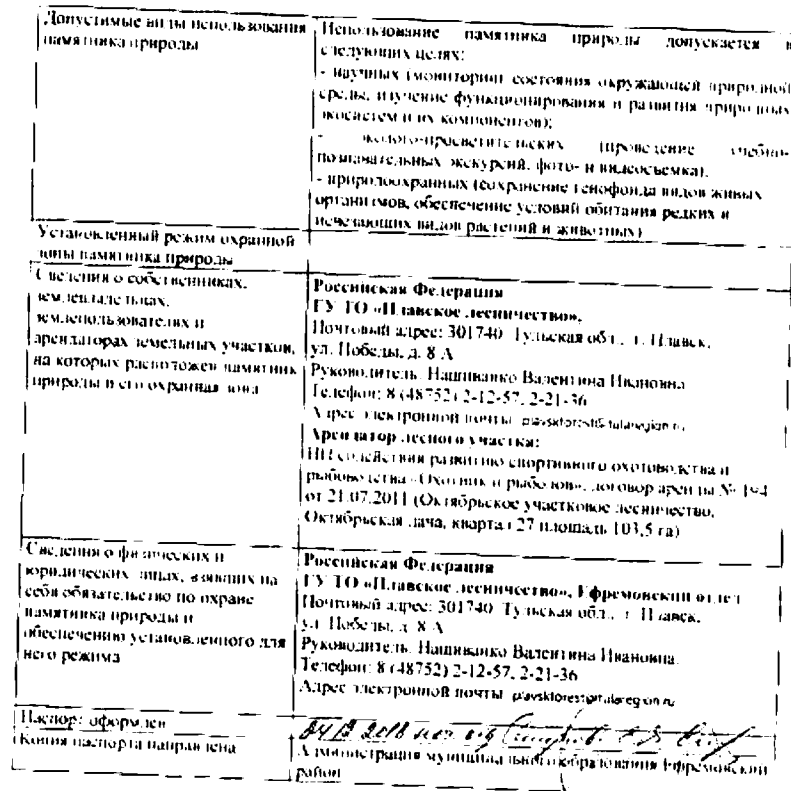 Допустимые виды использования
памятника природы
Использование памятника природы допускается в
следующих целях:
- научных (мониторинг состояния окружающей природной
среды, изучение функционирования и развития природных
экосистем и их компонентов);
- эколого-просветительских (проведение учебно-
познавательных экскурсий, фото- и видеосъемка),
- природоохранных (сохранение генофонда видов живых
организмов, обеспечение условий обитания редких и
исчезающих видов растений и животных)
Установленный режим охранной
зоны памятника природы
Сведения о собственниках,
землевладельцах,
землепользователях и
арендаторах земельных участков,
на которых расположен памятник
природы и его охранная зона
Российская Федерация
ГУ ТО «Плавское лесничество»,
Почтовый адрес: 301740 Тульская обл., г. Плавск,
ул. Победы, д. 8 А
Руководитель. Нашиванко Валентина Ивановна
Телефон: 8 (48752) 2-12-57, 2-21-36
Адрес электронной почты
Арендатор лесного участка:
НП содействия развитию спортивного охотоводства и
рыбоводства «Охотник и рыболов», договор аренды № 194
от 21.07.2011 (Октябрьское участковое лесничество,
Октябрьская дача, квартал 27 площадь 103,5 га)
Сведения о физических и
юридических лицах, взявших на
себя обязательство по охране
памятника природы и
обеспечению установленного для
него режима
Российская Федерация
ГУ ТО «Плавское лесничество», Ефремовский отдел
Почтовый адрес: 301740 Тульская обл., г. Плавск,
ул. Победы, д. 8 А
Руководитель. Нашиванко Валентина Ивановна.
Телефон: 8 (48752) 2-12-57, 2-21-36
Адрес электронной почты
Паспорт оформлен
Копия паспорта направлена
Администрация муниципального образования Ефремовский
район